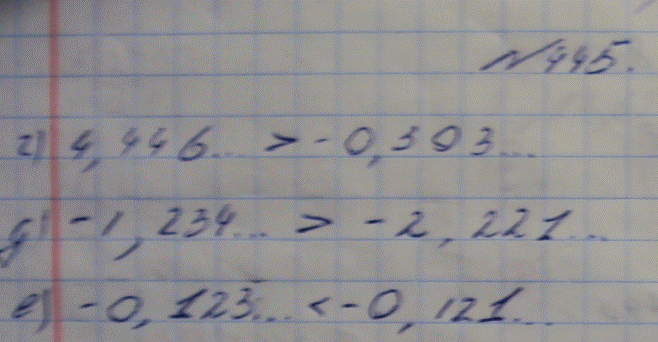 №445.
г) 4,446... > -0,303...
д) -1,234... > -2,221...
е) -0,123... < -0,121...